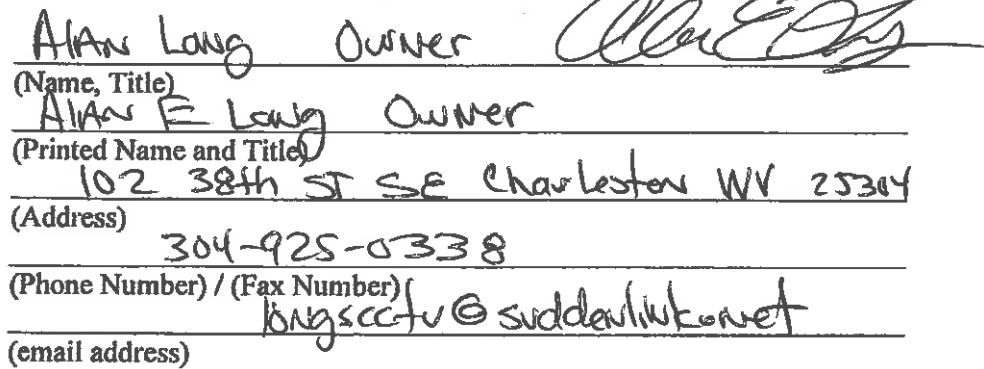 Alan Long Owner
(Name, Title)
Alan E Long Owner
(Printed Name and Title)
102 38th ST SE Charleston WV 25304
(Address)
304-925-0338
(Phone Number) / (Fax Number)
longscctv@suddenlink.net
(email address)